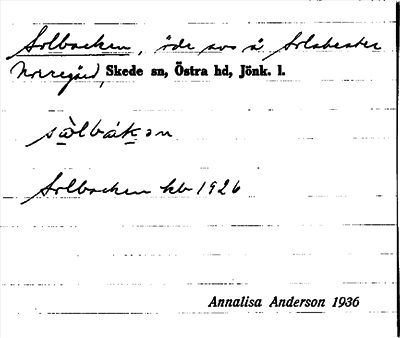 Solbacken, öde avs å Solabester
Norregård, Skede sn, Östra hd, Jönk. l.
sòlbákən
Solbacken kb 1926
Annalisa Anderson 1936